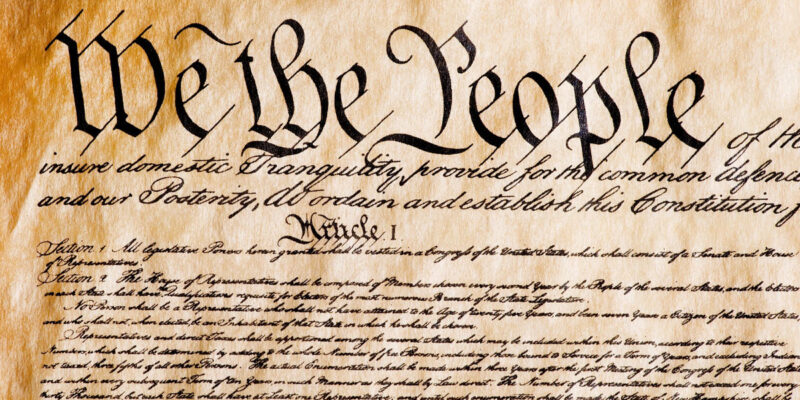 We the People of the
insure domestic Tranquility, provide for the common defence
and our Posterity, do ordain and establish this Constitution f
Article. I
Section 1 All legislative Powers herein granted shall be vested in a Congress of the United States, which shall consist of a Senate and House
of Representatives
Section 2 The House of Representatives shall be composed of Members chosen every second Year by the People of the several States, and the Electors
shall have Qualifications requisite for Electors of the most numerous Branch of the State Legislature.
No Person shall be a Representative who shall not have attained to the Age of twenty five Years, and been seven Years a Citizen of the United States,
and who shall not, when elected, be an Inhabitant of that State in which he shall be chosen.
Representatives and direct Taxes shall be apportioned among the several States which may be included within this Union, according to their respective
Numbers, which shall be determined by adding to the whole Number of free Persons, including those bound to Service for a Term of Years, and excluding Indians
not taxed, three fifths of all other Persons. The actual Enumeration shall be made within three Years after the first Meeting of the Congress of the United States
and within every subsequent Term of ten Years, in such Manner as they shall by Law direct. The Number of Representatives shall not exceed one for every
thirty Thousand, but each State shall have at Least one Representative, and until such enumeration shall be made, the State of New Hampshire shall be